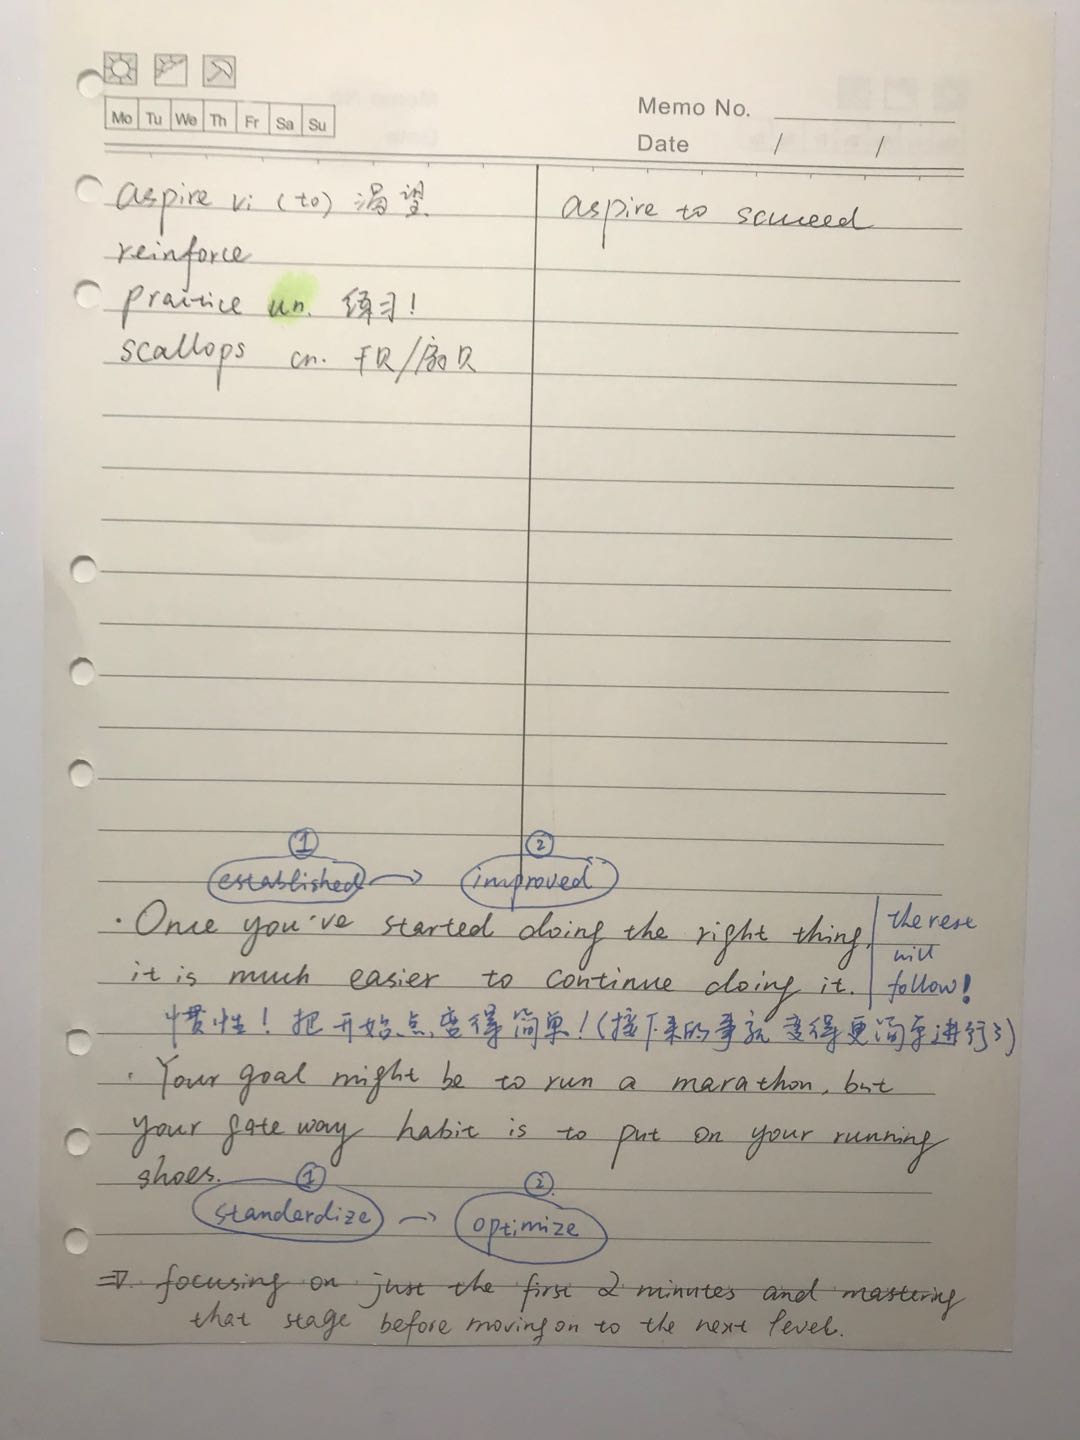 Mo Tu We Th Fr Sa Su
Memo No.
Date / /
aspire vi (to) 渴望
reinforce
practice un. 练习!
scallops cn. 干贝/扇贝
aspire to succeed
① ②
established → improved
· Once you've started doing the right thing,
it is much easier to continue doing it.
the rest
will
follow!
惯性! 把开始点变得简单! (接下来的事就变得更简单进行了)
· Your goal might be to run a marathon, but
your gateway habit is to put on your running
shoes.
① ②
standerdize → optimize
⇒ focusing on just the first 2 minutes and mastering
that stage before moving on to the next level.